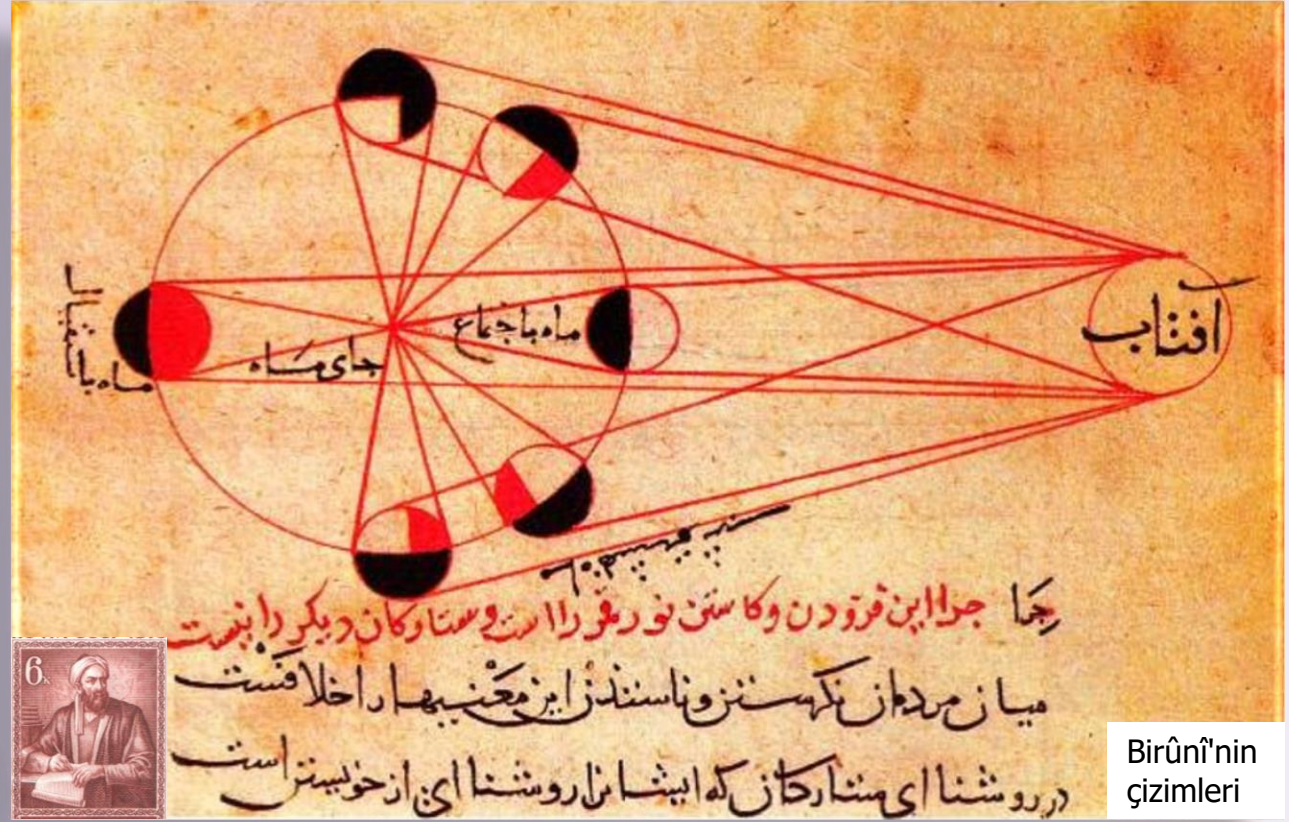 آفتاب
ماه باجتماع
جای ماه
ماه باستقبال
جرا جرا این فزودن وکاستن نور قمر را است وستارکان دیکر را نیست
میان مردمان این معنیها را خلافست
در روشنا ای ستارکان که ایشانرا روشنا ای از خویشتن است
6к
Birûnî'nin
çizimleri